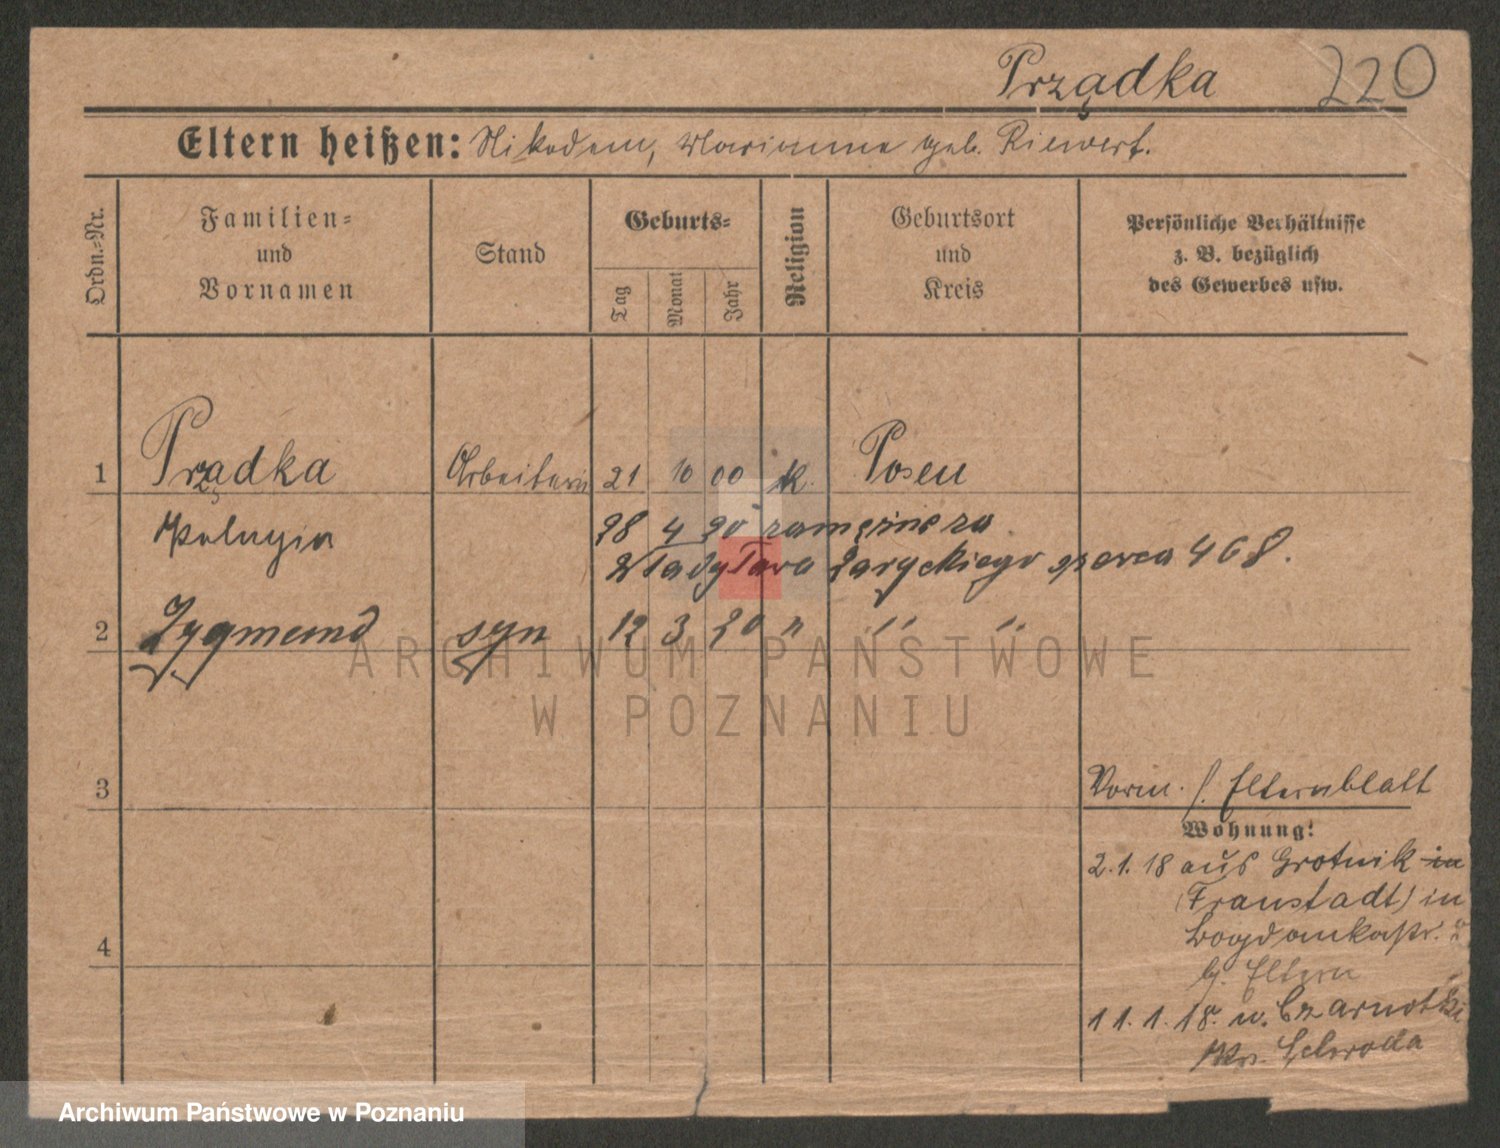 Prządka 220
Eltern heißen: Nikodem, Marianna geb. Riewert.
Ordn.=Nr.
Familien=
und
Vornamen
Stand
Geburts=
Tag
Monat
Jahr
Religion
Geburtsort
und
Kreis
Persönliche Verhältnisse
z. B. bezüglich
des Gewerbes usw.
1 Prządka Arbeiterin 21 10 00 k. Posen
Pelagia 28 4 20 zamężne za
Władysława Zaryckiego 468.
2 Zygmund syn 12 3 20 " " "
ARCHIWUM PAŃSTWOWE
W POZNANIU
3
Vorm. s. Elternblatt
Wohnung:
2.1.18 aus Grotnik in
(Fraustadt) in
Bogdankastr.
b. Eltern
4
11.1.18. n. Czarnotki
Kr. Schroda
Archiwum Państwowe w Poznaniu